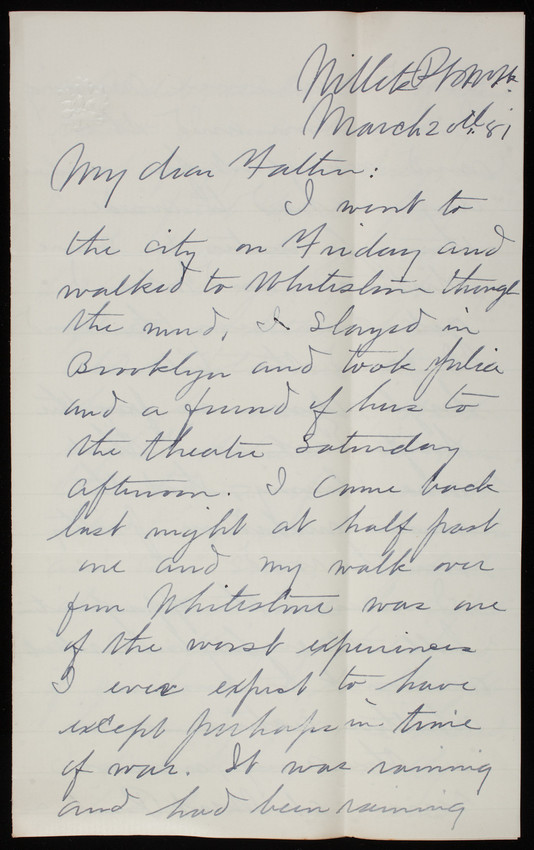 Willets Pt. N.Y.H.
March 20th. 81
My dear Father:
I went to
the city on Friday and
walked to Whitestone through
the mud. I stayed in
Brooklyn and took Julia
and a friend of hers to
the theatre Saturday
afternoon. I came back
last night at half past
one and my walk over
from Whitestone was one
of the worst experiences
I ever expect to have
except perhaps in time
of war. It was raining
and had been raining